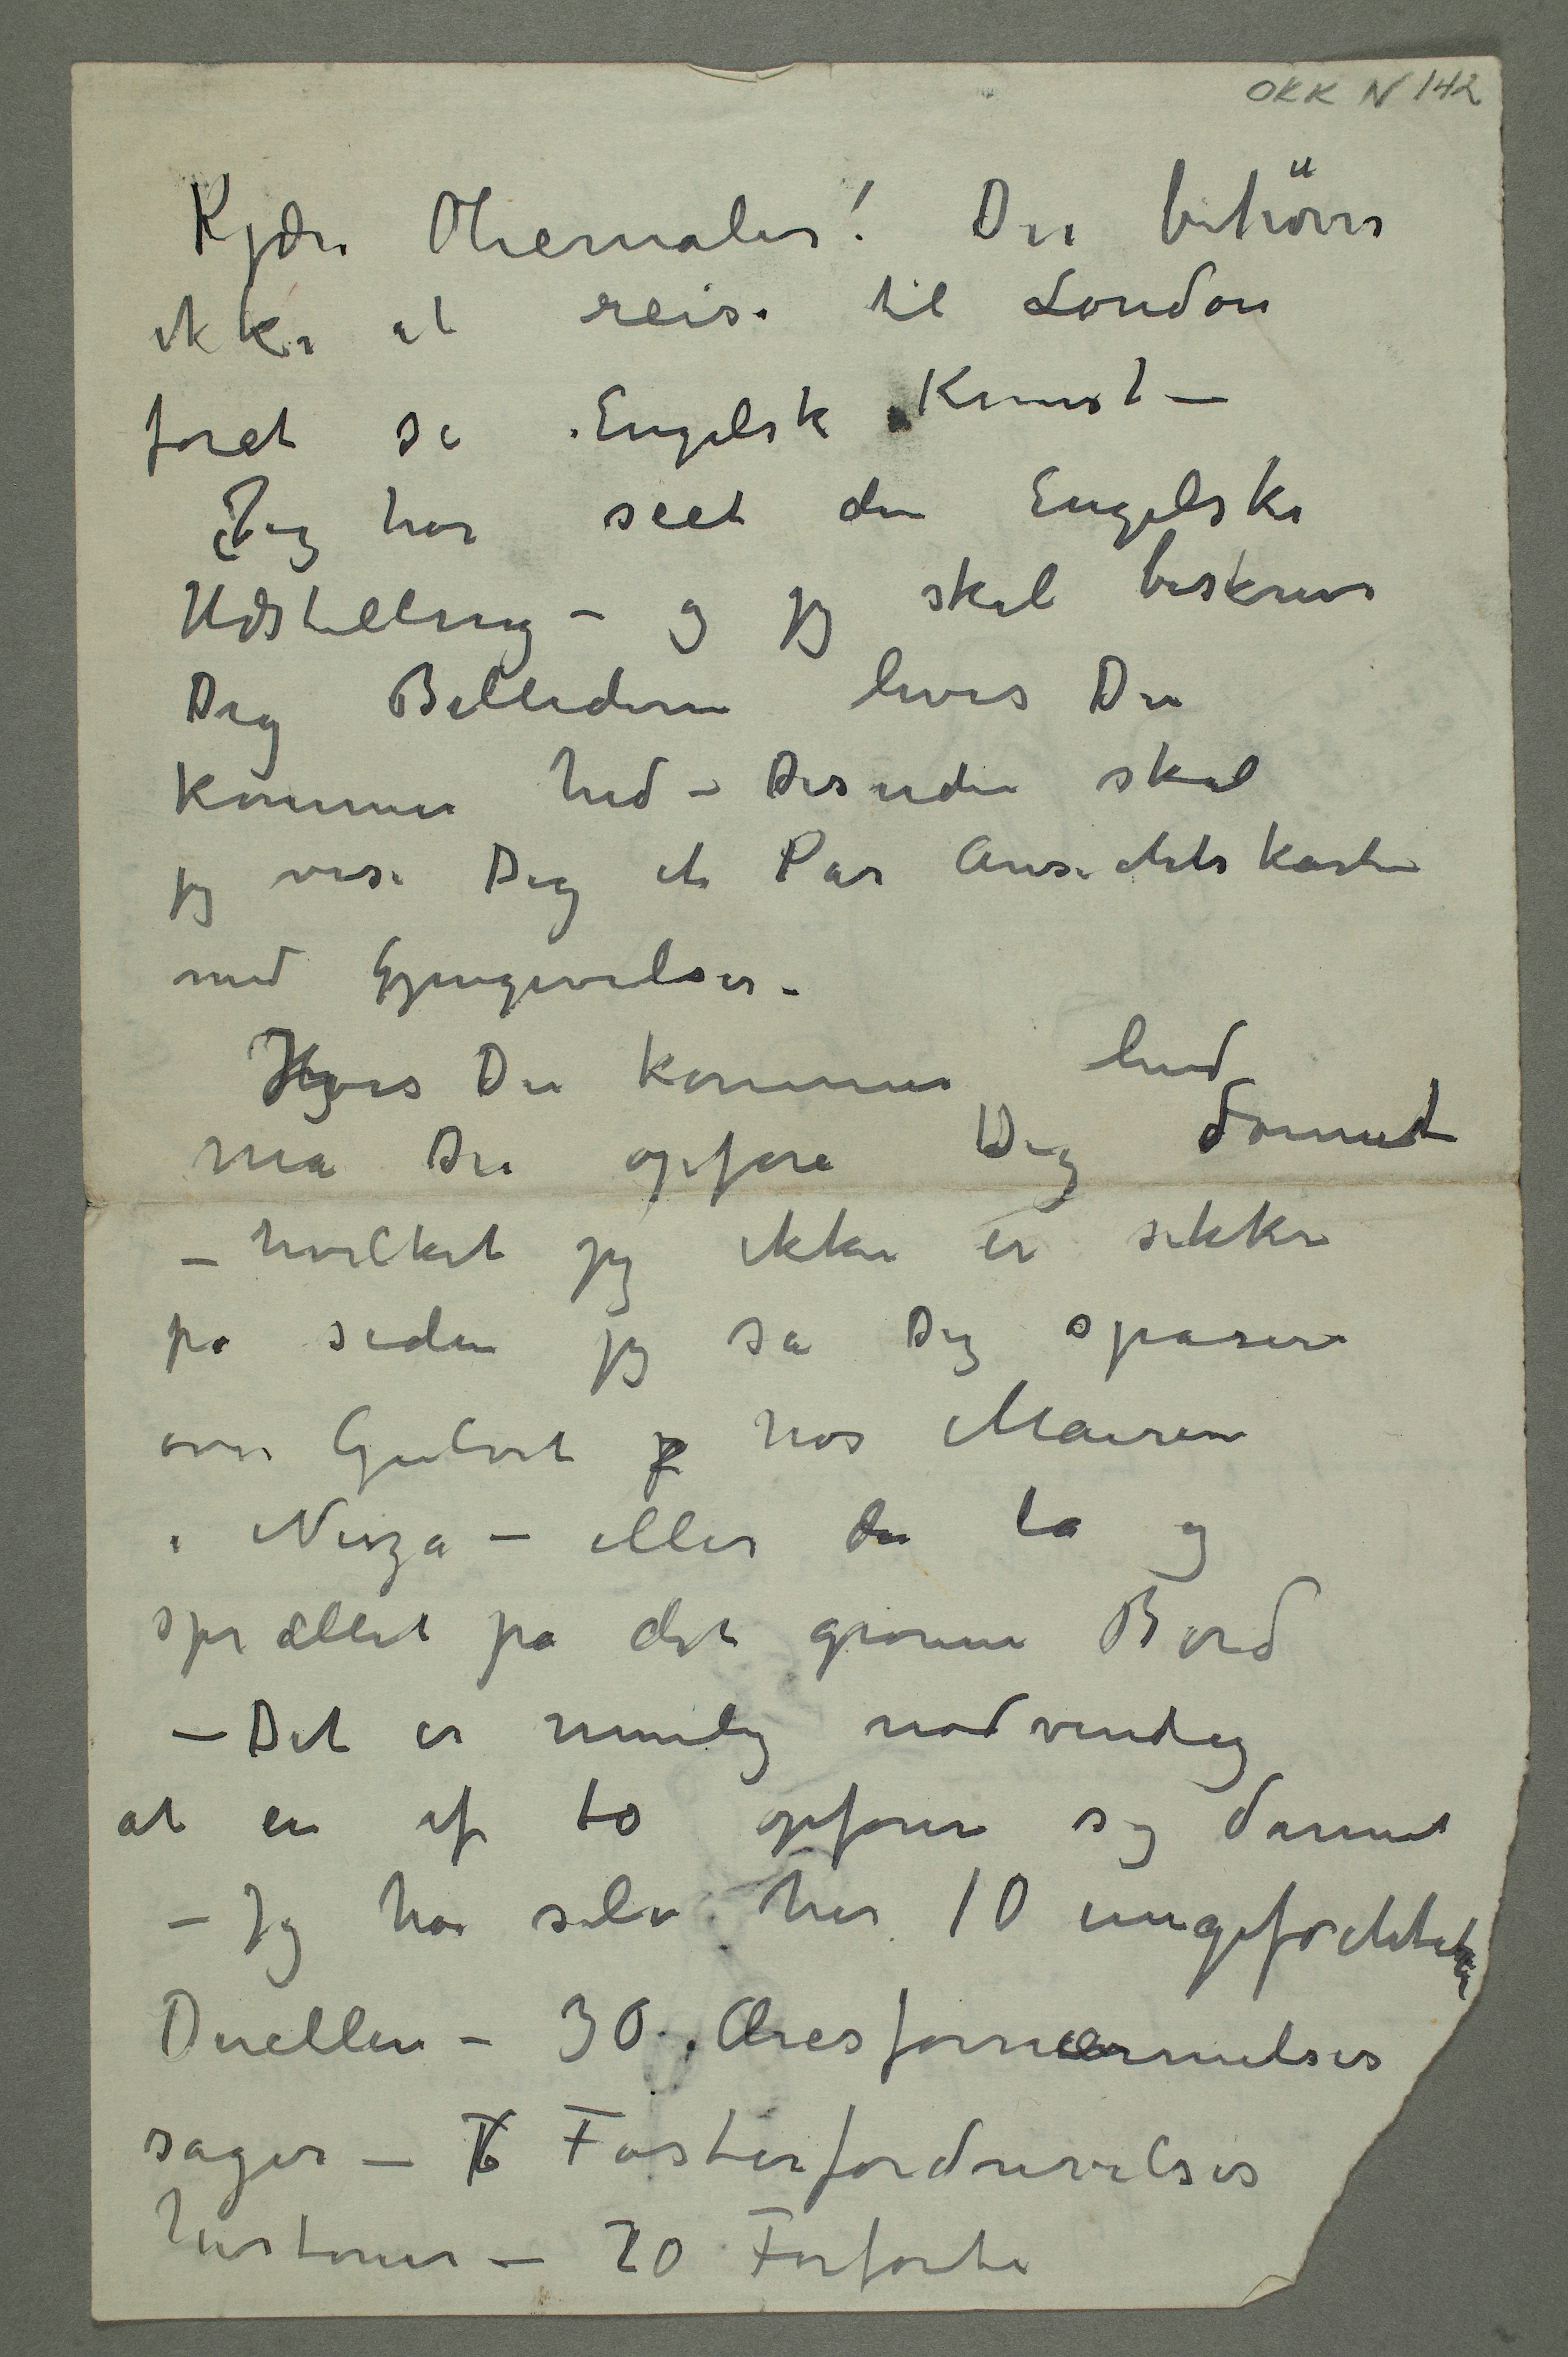 OKK N 142
Kjære Oliemaler! Du behöver
ikke at reise til London
forat se Engelsk Kunst –
Jeg har seet den Engelske
Udstilling – og jeg skal beskrive
Dig Billederne hvis Du
kommer hid – Desuden skal
jeg vise Dig et Par Ansichtskarten
med Gjengivelser. –
Hvis Du kommer hid
må Du opføre Dig dannet
– hvilket jeg ikke er sikker
på siden jeg så Dig spasere
over Gulvet hos Mairen
i Nizza – eller du lå og
sprællet på det grønne Bord
– Det er nemlig nødvendig
at en af to opfører sig dannet
– Jeg har selv her 10 ungefochtete
Duellen – 30 Æresfornærmelses
sager – 6 Fosterfordrivelses
historier – 20 Forførte